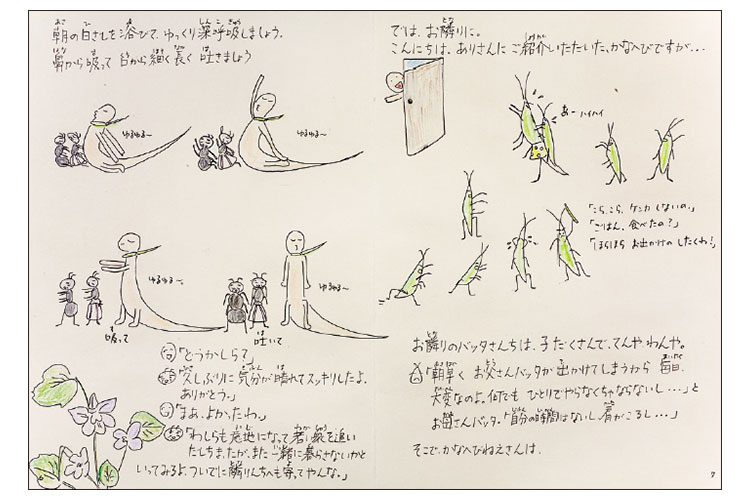 朝の日ざしを浴びて、ゆっくり深呼吸しましょう。
鼻から吸って 口から細く長く 吐きましょう
ゆるゆる〜
ゆるゆる〜
ゆるゆる〜
ゆるゆる〜
吸って
吐いて
「どうかしらて」
「久しぶりに気分が晴れてスッキリしたよ。
ありがとう。」
「まあ、よかったわ。」
「わしらも意地になって若い衆を追い
たしちまったが、また一緒に暮らさないかと
いってみるよ、ついでに隣りんちへも寄ってやんな。」
では、お隣りに。
こんにちは、ありさんに ご紹介いただいた、かなへびですが...
あーハイハイ
「こら、こら、ケンカ しないの。」
「ごはん、食べたの?」
「ほらほら お出かけの したくわ!」
お隣りのバッタさんちは、子だくさんで、てんやわんや。
「朝早く お父さんバッタが 出かけてしまうから 毎日、
大変なのよ。何でも ひとりでやらなくちゃならないし...」と
お母さんバッタ。「自分の時間はないし 肩がこるし...」
そこで、かなへびねえさんは、
7